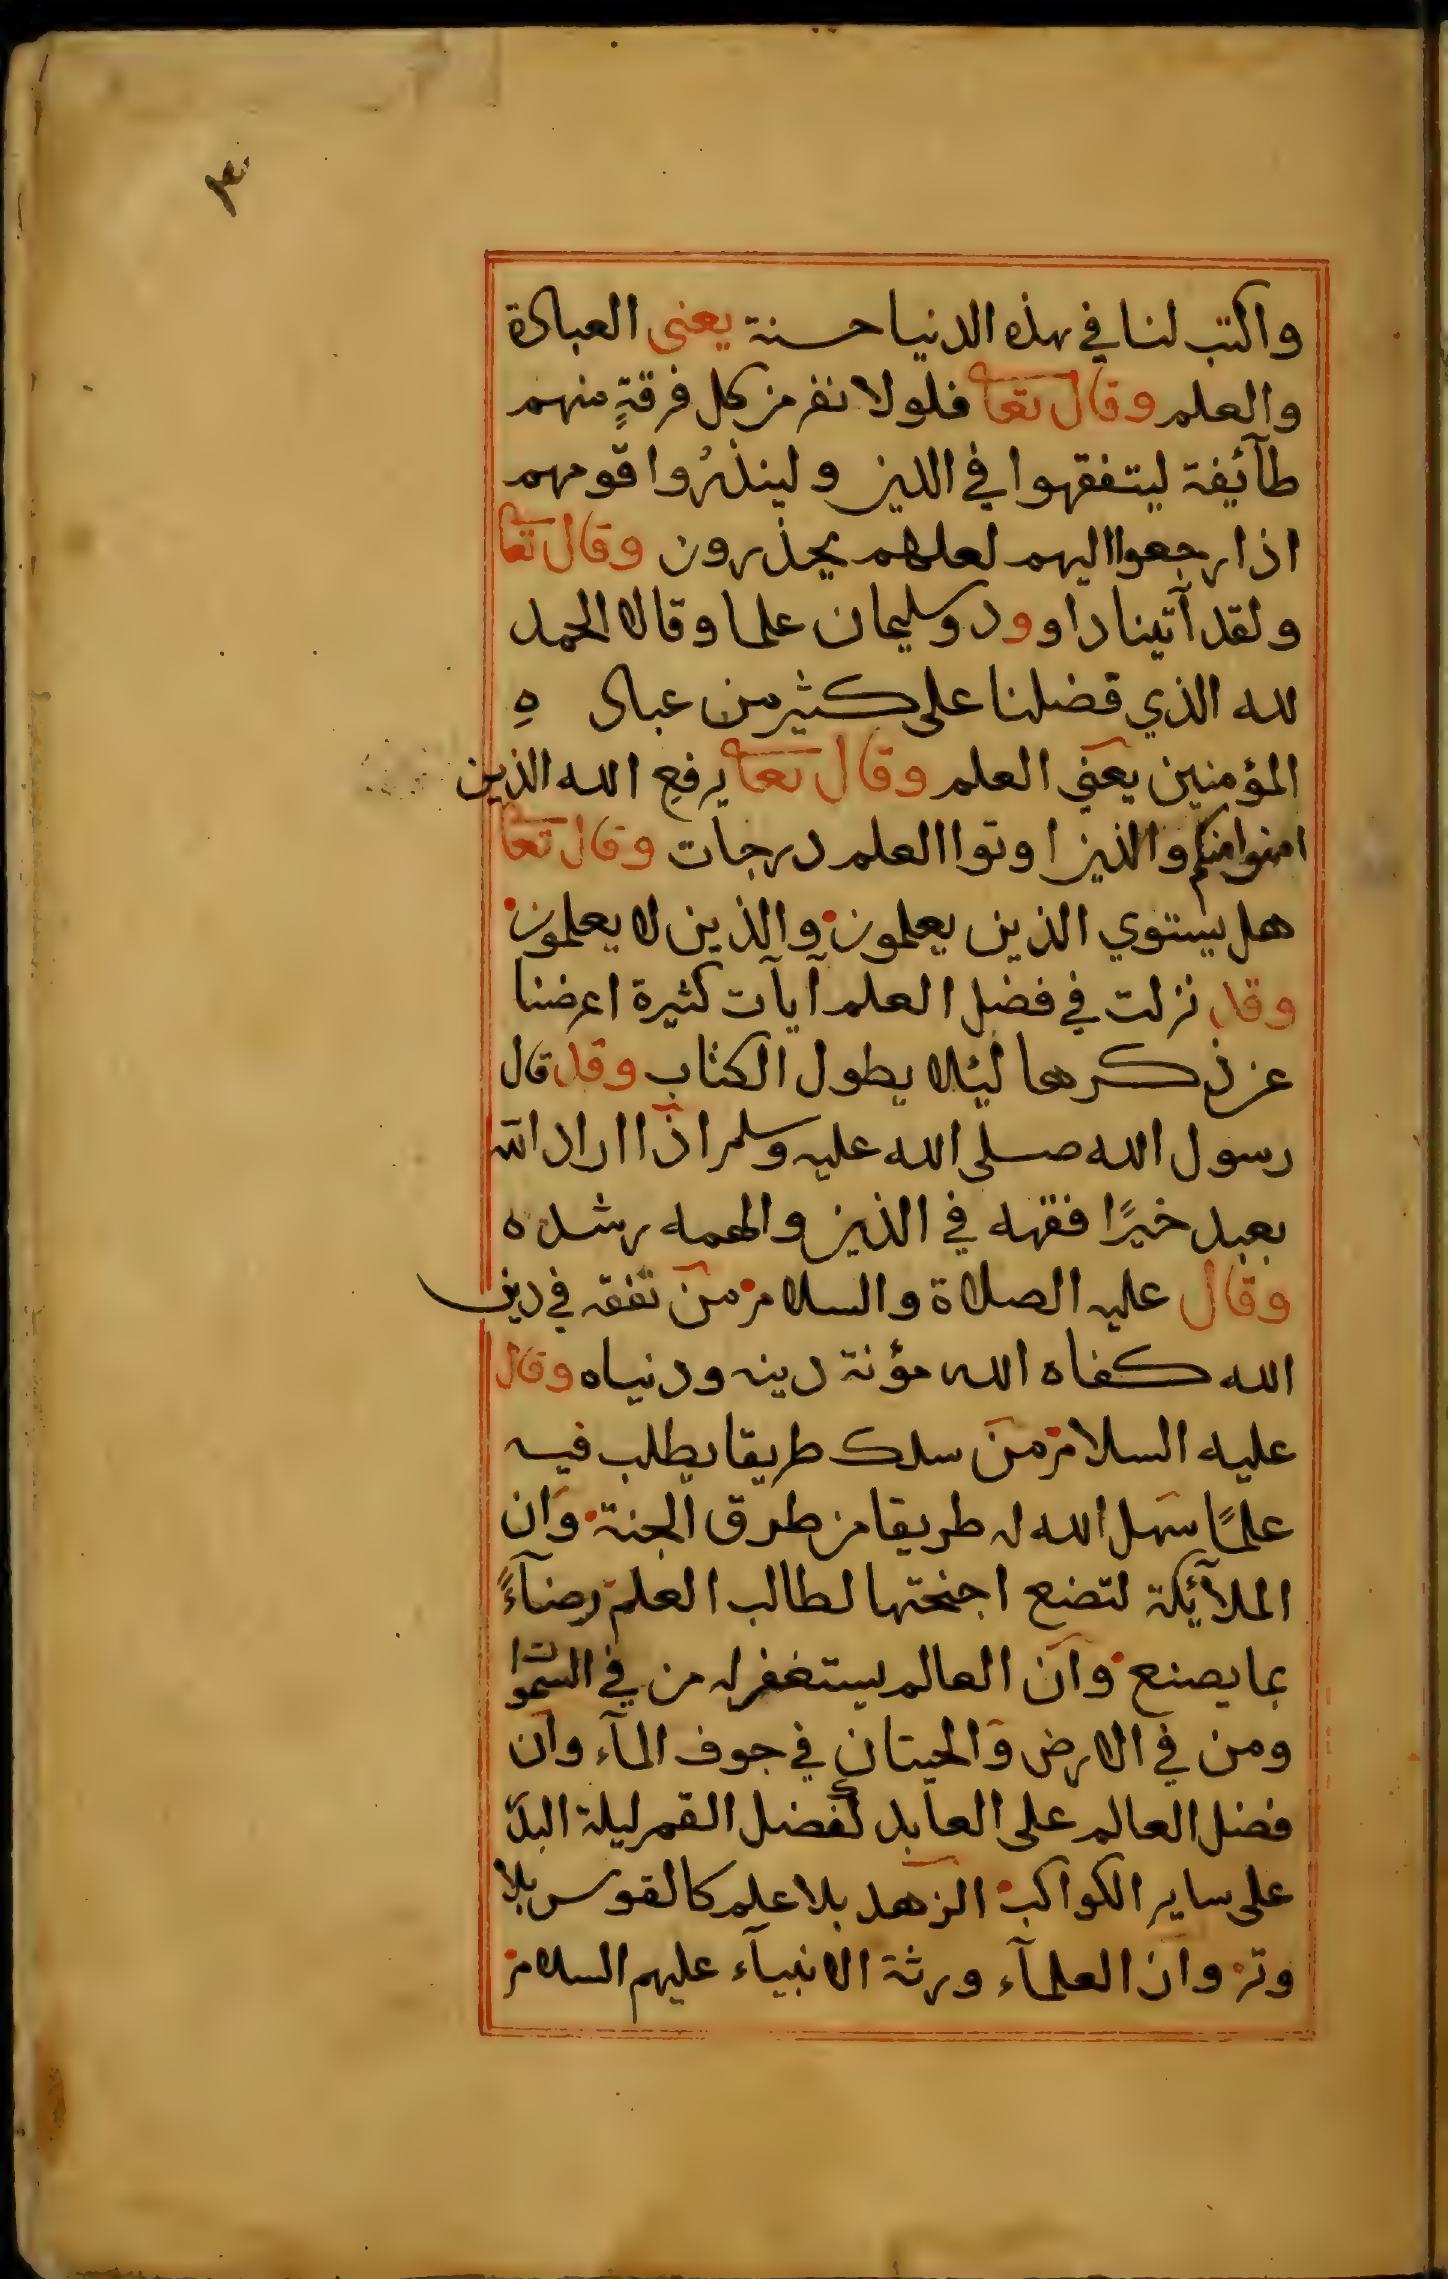 واكتب لنا في هذه الدنيا حسنة يعنى العبادة
والعلم وقال تعا فلولا نفر من كل فرقةٍ منهم
طآئفة ليتفقهوا في الدين ولينذرُوا قومهم
اذا رجعوا اليهم لعلهم يحذرون وقال تعا
ولقد آتينا داوود وسليمان علما وقالا الحمد
لله الذي فضلنا على كثير من عباده
المؤمنين يعني العلم وقال تعا يرفع الله الذين
امنوا منكم والذين اوتوا العلم درجات وقال تعا
هل يستوي الذين يعلمون والذين لا يعلمون
وقد نزلت في فضل العلم آيآت كثيرة اعرضنا
عن ذكرها ليئلا يطول الكتاب وقد قال
رسول الله صلى الله عليه وسلم اذا اراد الله
بعبد خيرًا فقهه في الدين والهمه رشده
وقال عليه الصلاة والسلام من تفقه في دين
الله كفاه الله مؤنة دينه ودنياه وقال
عليه السلام من سلك طريقا يطلب فيه
علمًا سهل الله له طريقا من طرق الجنة وان
الملآئكة لتضع اجنحتها لطالب العلم رضآءً
بما يصنع وان العالم يستغفر له من في السموات
ومن في الارض والحيتان في جوف المآء وان
فضل العالم على العابد كفضل القمر ليلة البد
على ساير الكواكب الزهد بلا علم كالقوس بلا
وتر وان العلمآء ورثة الانبيآء عليهم السلام